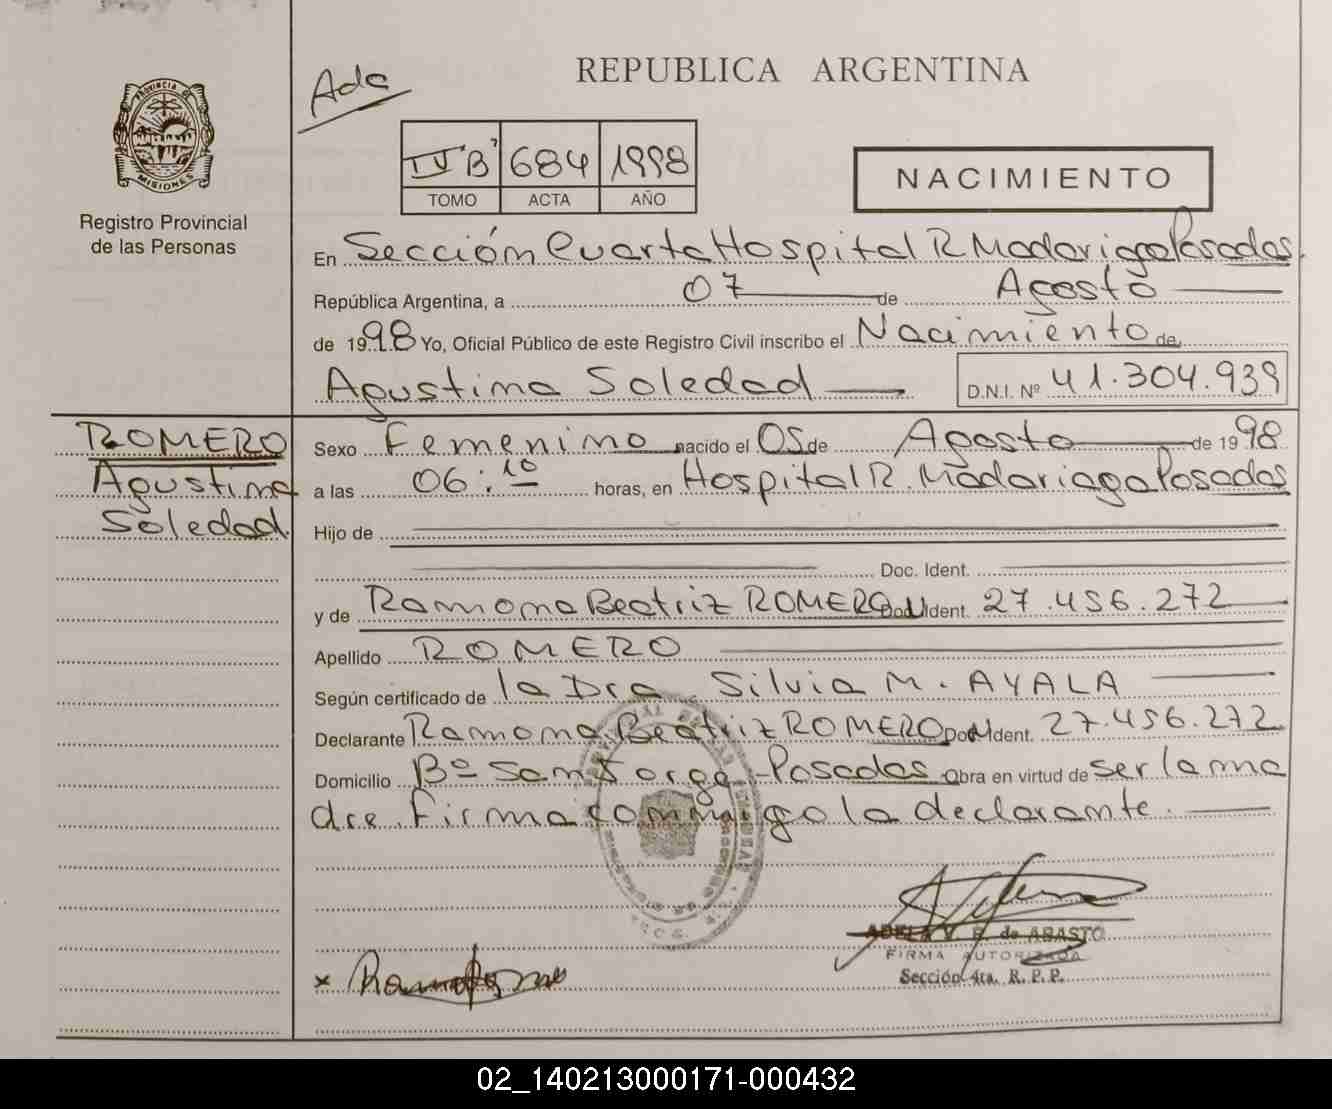 REPUBLICA ARGENTINA
Ada
PROVINCIA D
MISIONES
Registro Provincial
de las Personas
IV"B" 684 1998
TOMO ACTA AÑO
NACIMIENTO
En Sección Cuarta Hospital R Madariaga Posadas.
República Argentina, a 07 de Agosto
de 1998 Yo, Oficial Público de este Registro Civil inscribo el Nacimiento de
Agustina Soledad D.N.I. Nº 41.304.939
ROMERO
Agustina
Soledad
Sexo Femenino nacido el 05 de Agosto de 1998
a las 06:10 horas, en Hospital R. Madariaga Posadas
Hijo de
Doc. Ident.
y de Ramona Beatriz ROMERO Doc. Ident. 27.456.272
Apellido ROMERO
Según certificado de la Dra. Silvia M. AYALA
Declarante Ramona Beatriz ROMERO Doc. Ident. 27.456.272
Domicilio Bº San Jorge - Posadas Obra en virtud de ser la ma
dre. Firma conmigo la declarante.
ADELA V. E. de ABASTO
FIRMA AUTORIZADA
Sección 4ta. R. P. P.
x
02_140213000171-000432